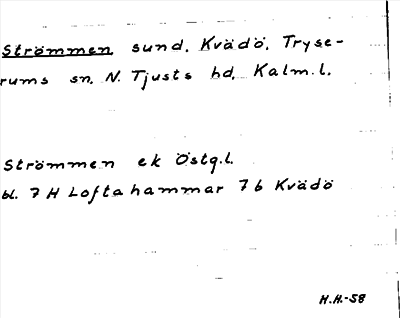 Strömmen, sund, Kvädö, Tryse-
rums sn, N. Tjusts hd, Kalm.l.
Strömmen ek Östg.l.
bl. 7 H Loftahammar 7b Kvädö
H.H.-58